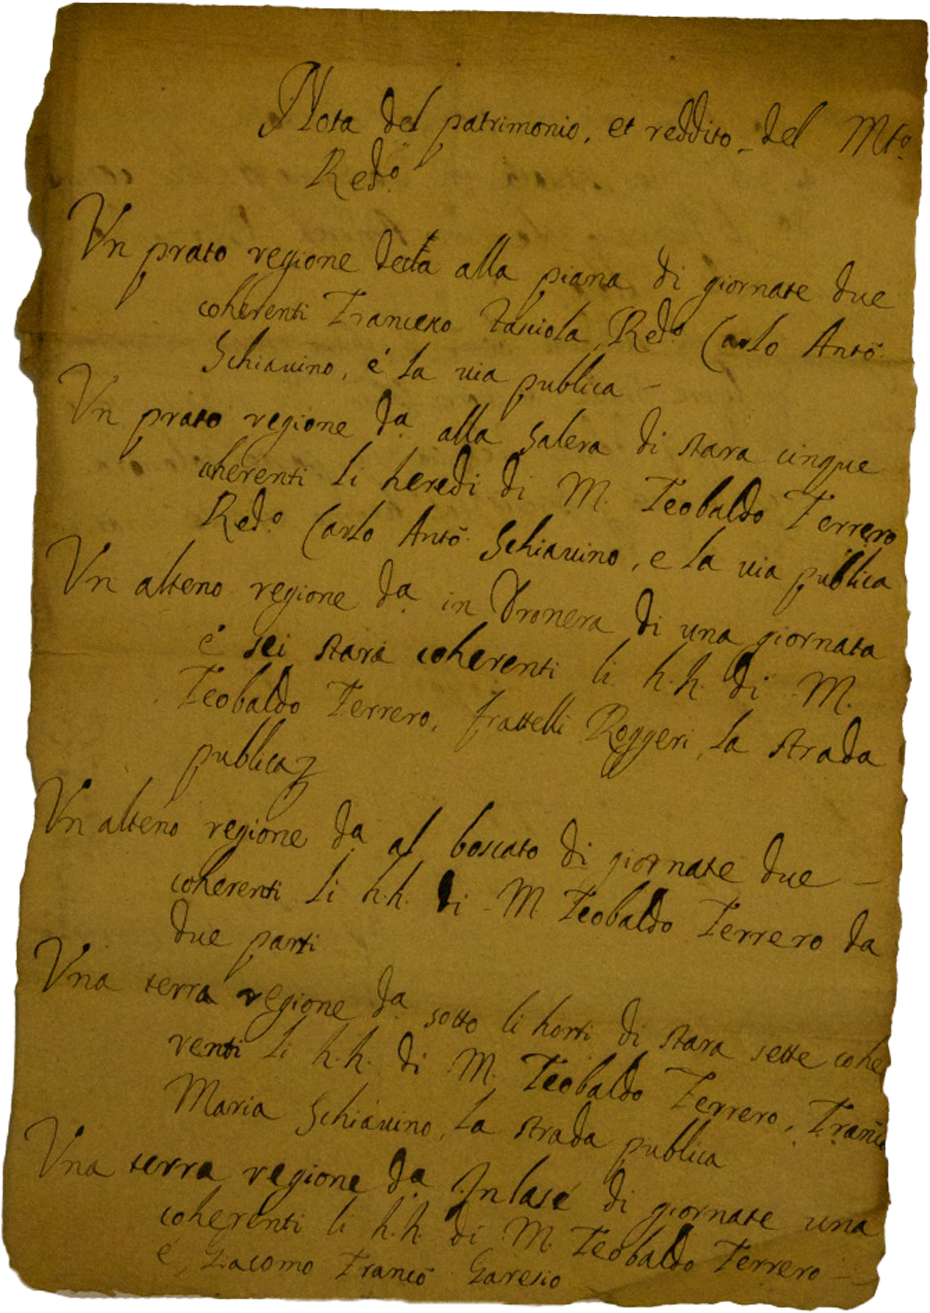 Nota del patrimonio, et reddito del Mto
Redo
Vn prato regione detta alla piana di giornate due
coherenti Francesco Redo Carlo Antõ
Schiauino, é la uia publica
Vn prato regione da alla Salera di stara cinque
coherenti li heredi di M. Teobaldo Ferrero
Redo Carlo Antõ Schiauino, e la uia publica
Vn alteno regione da in Dronera di una giornata
é sei stara coherenti li h.h. di M.
Teobaldo Ferrero, frattelli Roggeri, la strada
publica
Vn alteno regione da al boscato di giornate due
coherenti li h.h. di M. Teobaldo Ferrero da
due parti
Vna terra regione da sotto li horti di stara sette cohe
renti li h.h. di M. Teobaldo Ferrero, Franco
Maria Schiauino, la strada publica
Vna terra regione da Inlasé di giornate una
coherenti li h.h. di M. Teobaldo Ferrero
é Giacomo Francõ Garesio